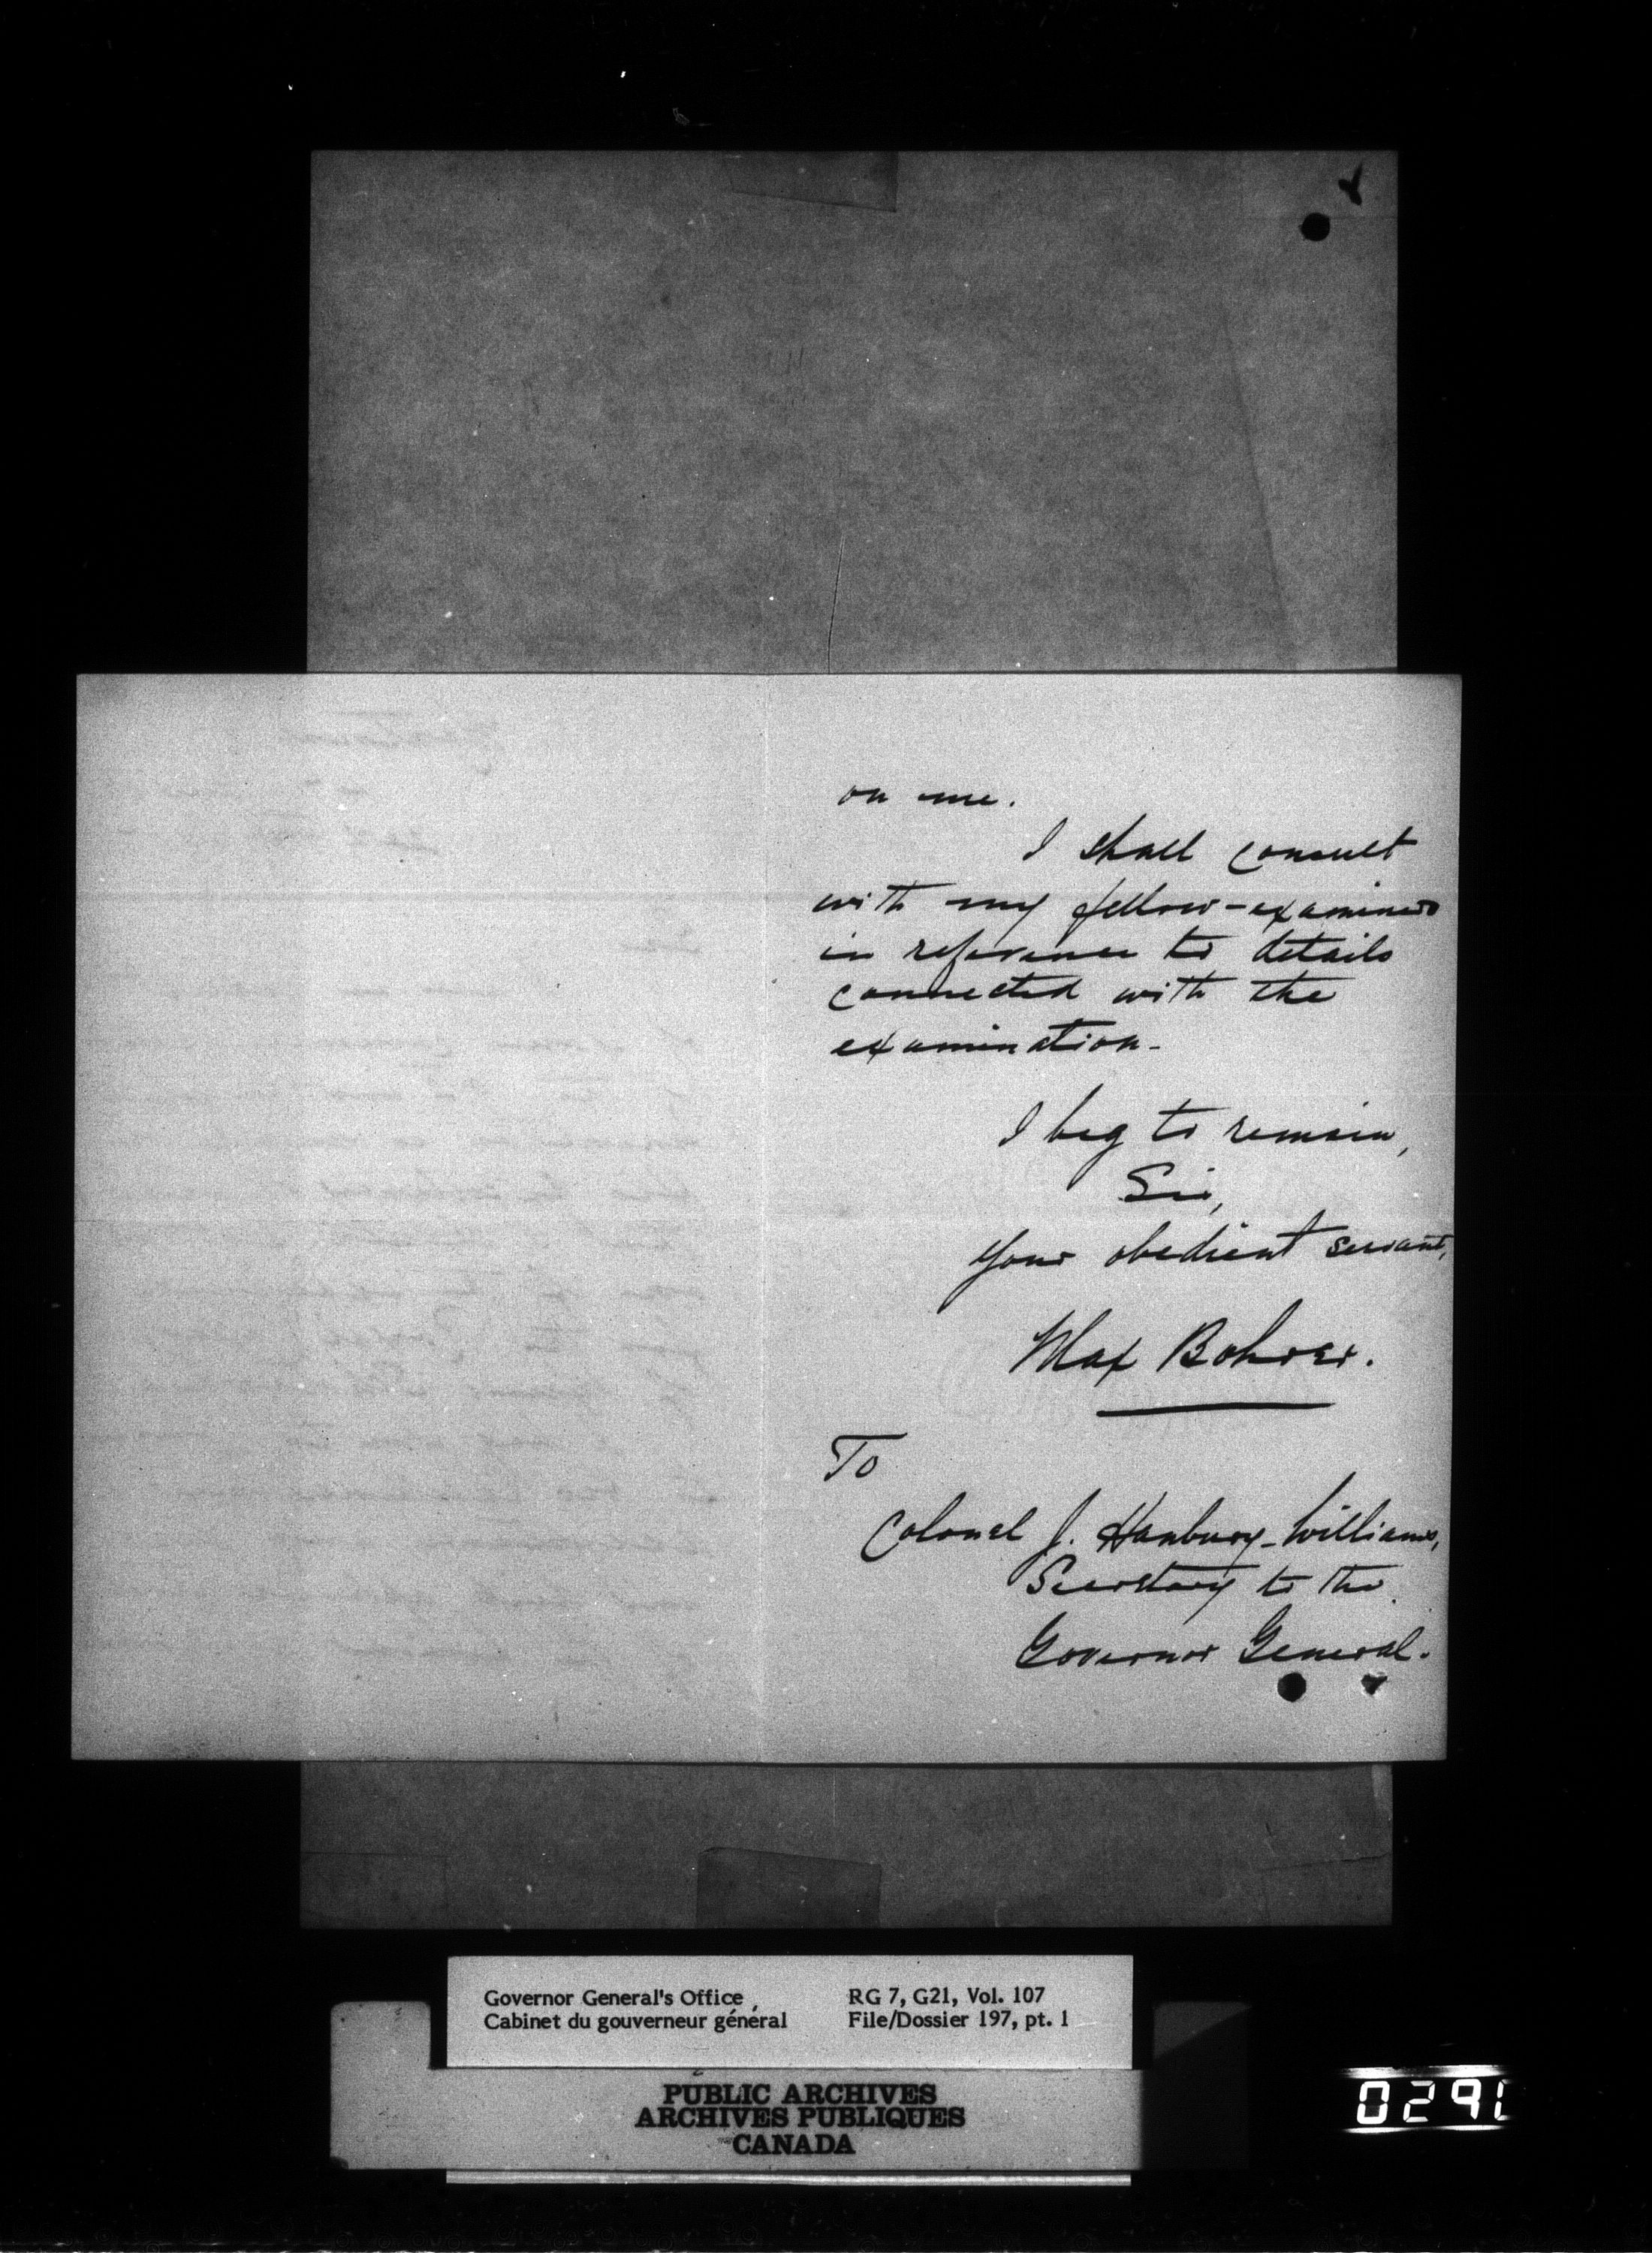 on me.
I shall consult
with my fellow-examiners
in reference to details
connected with the
examination.
I beg to remain,
Sir,
Your obedient servant,
Max Bohrer.
To
Colonel J. Hanbury-Williams,
Secretary to the
Governor General.
Governor General's Office
Cabinet du gouverneur général
RG 7, G21, Vol. 107
File/Dossier 197, pt. 1
PUBLIC ARCHIVES
ARCHIVES PUBLIQUES
CANADA